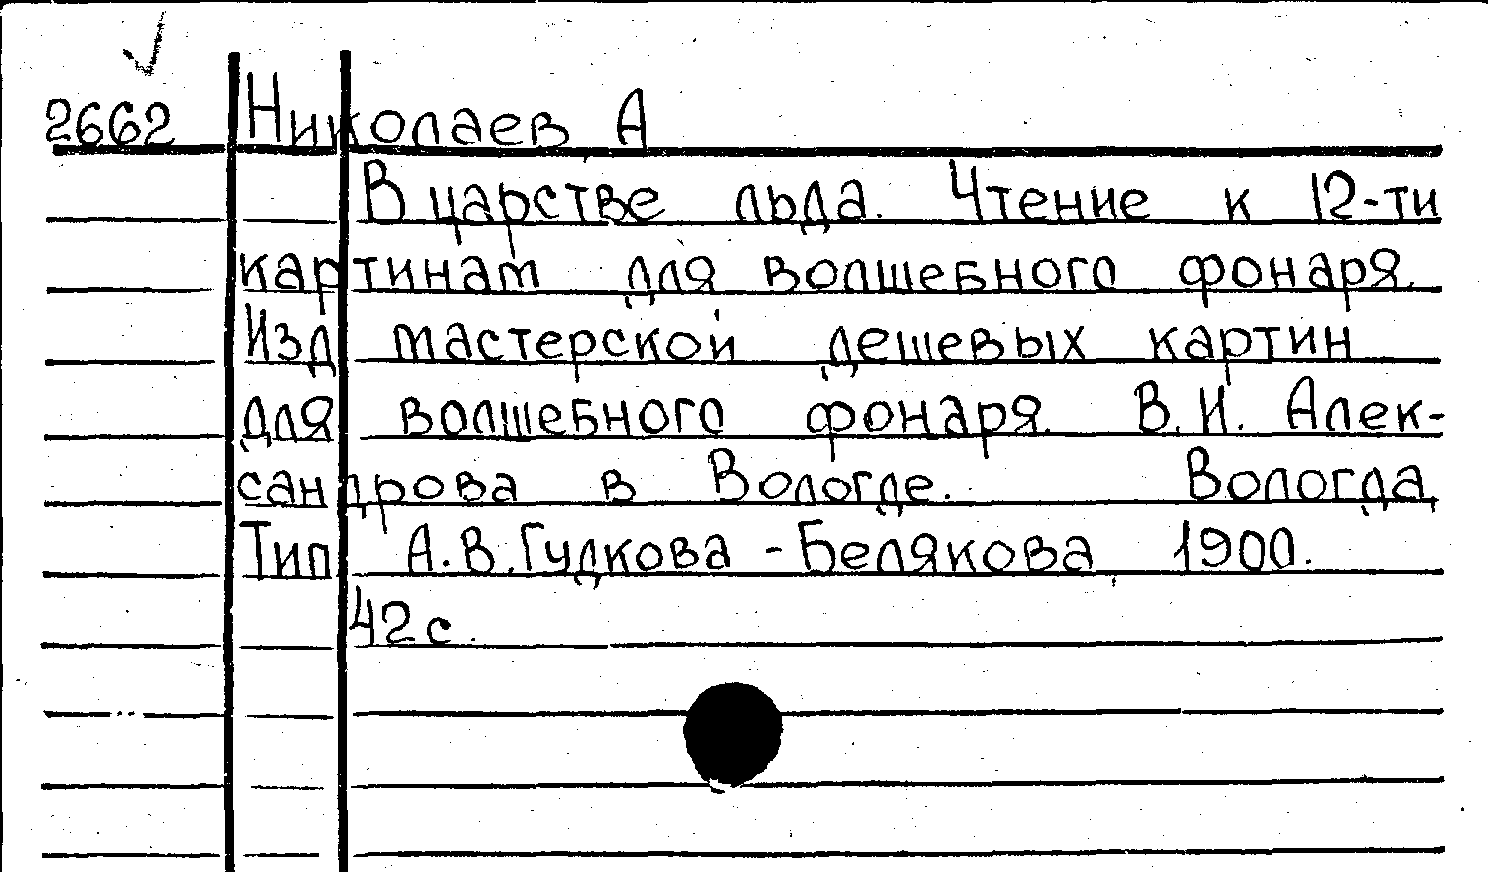 2662 Николаев А
В царстве льда. Чтение к 12-ти
картинам для волшебного фонаря.
Изд мастерской дешевых картин
для волшебного фонаря. В.И. Алек-
сандрова в Вологде. Вологда,
Тип А.В.Гудкова-Белякова, 1900.
42 с.